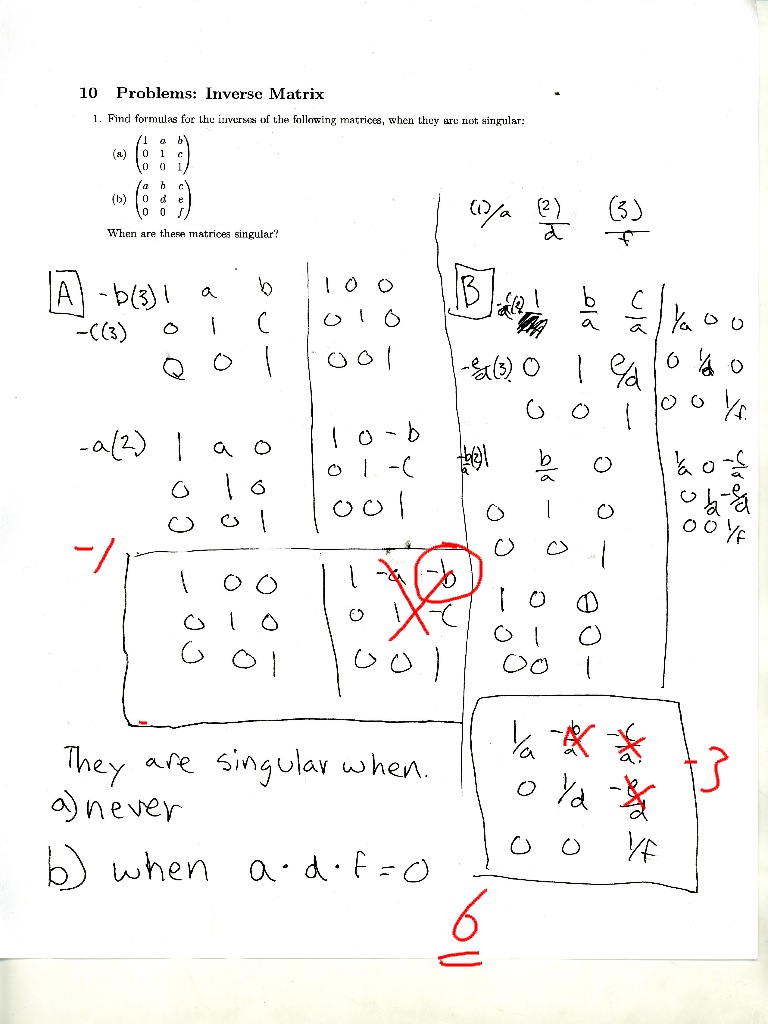 10 Problems: Inverse Matrix
1. Find formulas for the inverses of the following matrices, when they are not singular:
(a) (1 a b
0 1 c
0 0 1)
(b) (a b c
0 d e
0 0 f)
When are these matrices singular?
A
-b(3) 1 a b | 1 0 0
-c(3) 0 1 c | 0 1 0
0 0 1 | 0 0 1
-a(2) 1 a 0 | 1 0 -b
0 1 0 | 0 1 -c
0 0 1 | 0 0 1
-1
1 0 0 | 1 -a -b
0 1 0 | 0 1 -c
0 0 1 | 0 0 1
They are singular when.
a) never
b) when a·d·f=0
(1)/a (2)/d (3)/f
B
1 b/a c/a | 1/a 0 0
-e/d(3) 0 1 e/d | 0 1/d 0
0 0 1 | 0 0 1/f
-b/a(2) 1 b/a 0 | 1/a 0 -c/a
0 1 0 | 0 1/d -e/d
0 0 1 | 0 0 1/f
1 0 0
0 1 0
0 0 1
1/a -b/a -c/a
0 1/d -e/d
0 0 1/f
-3
6